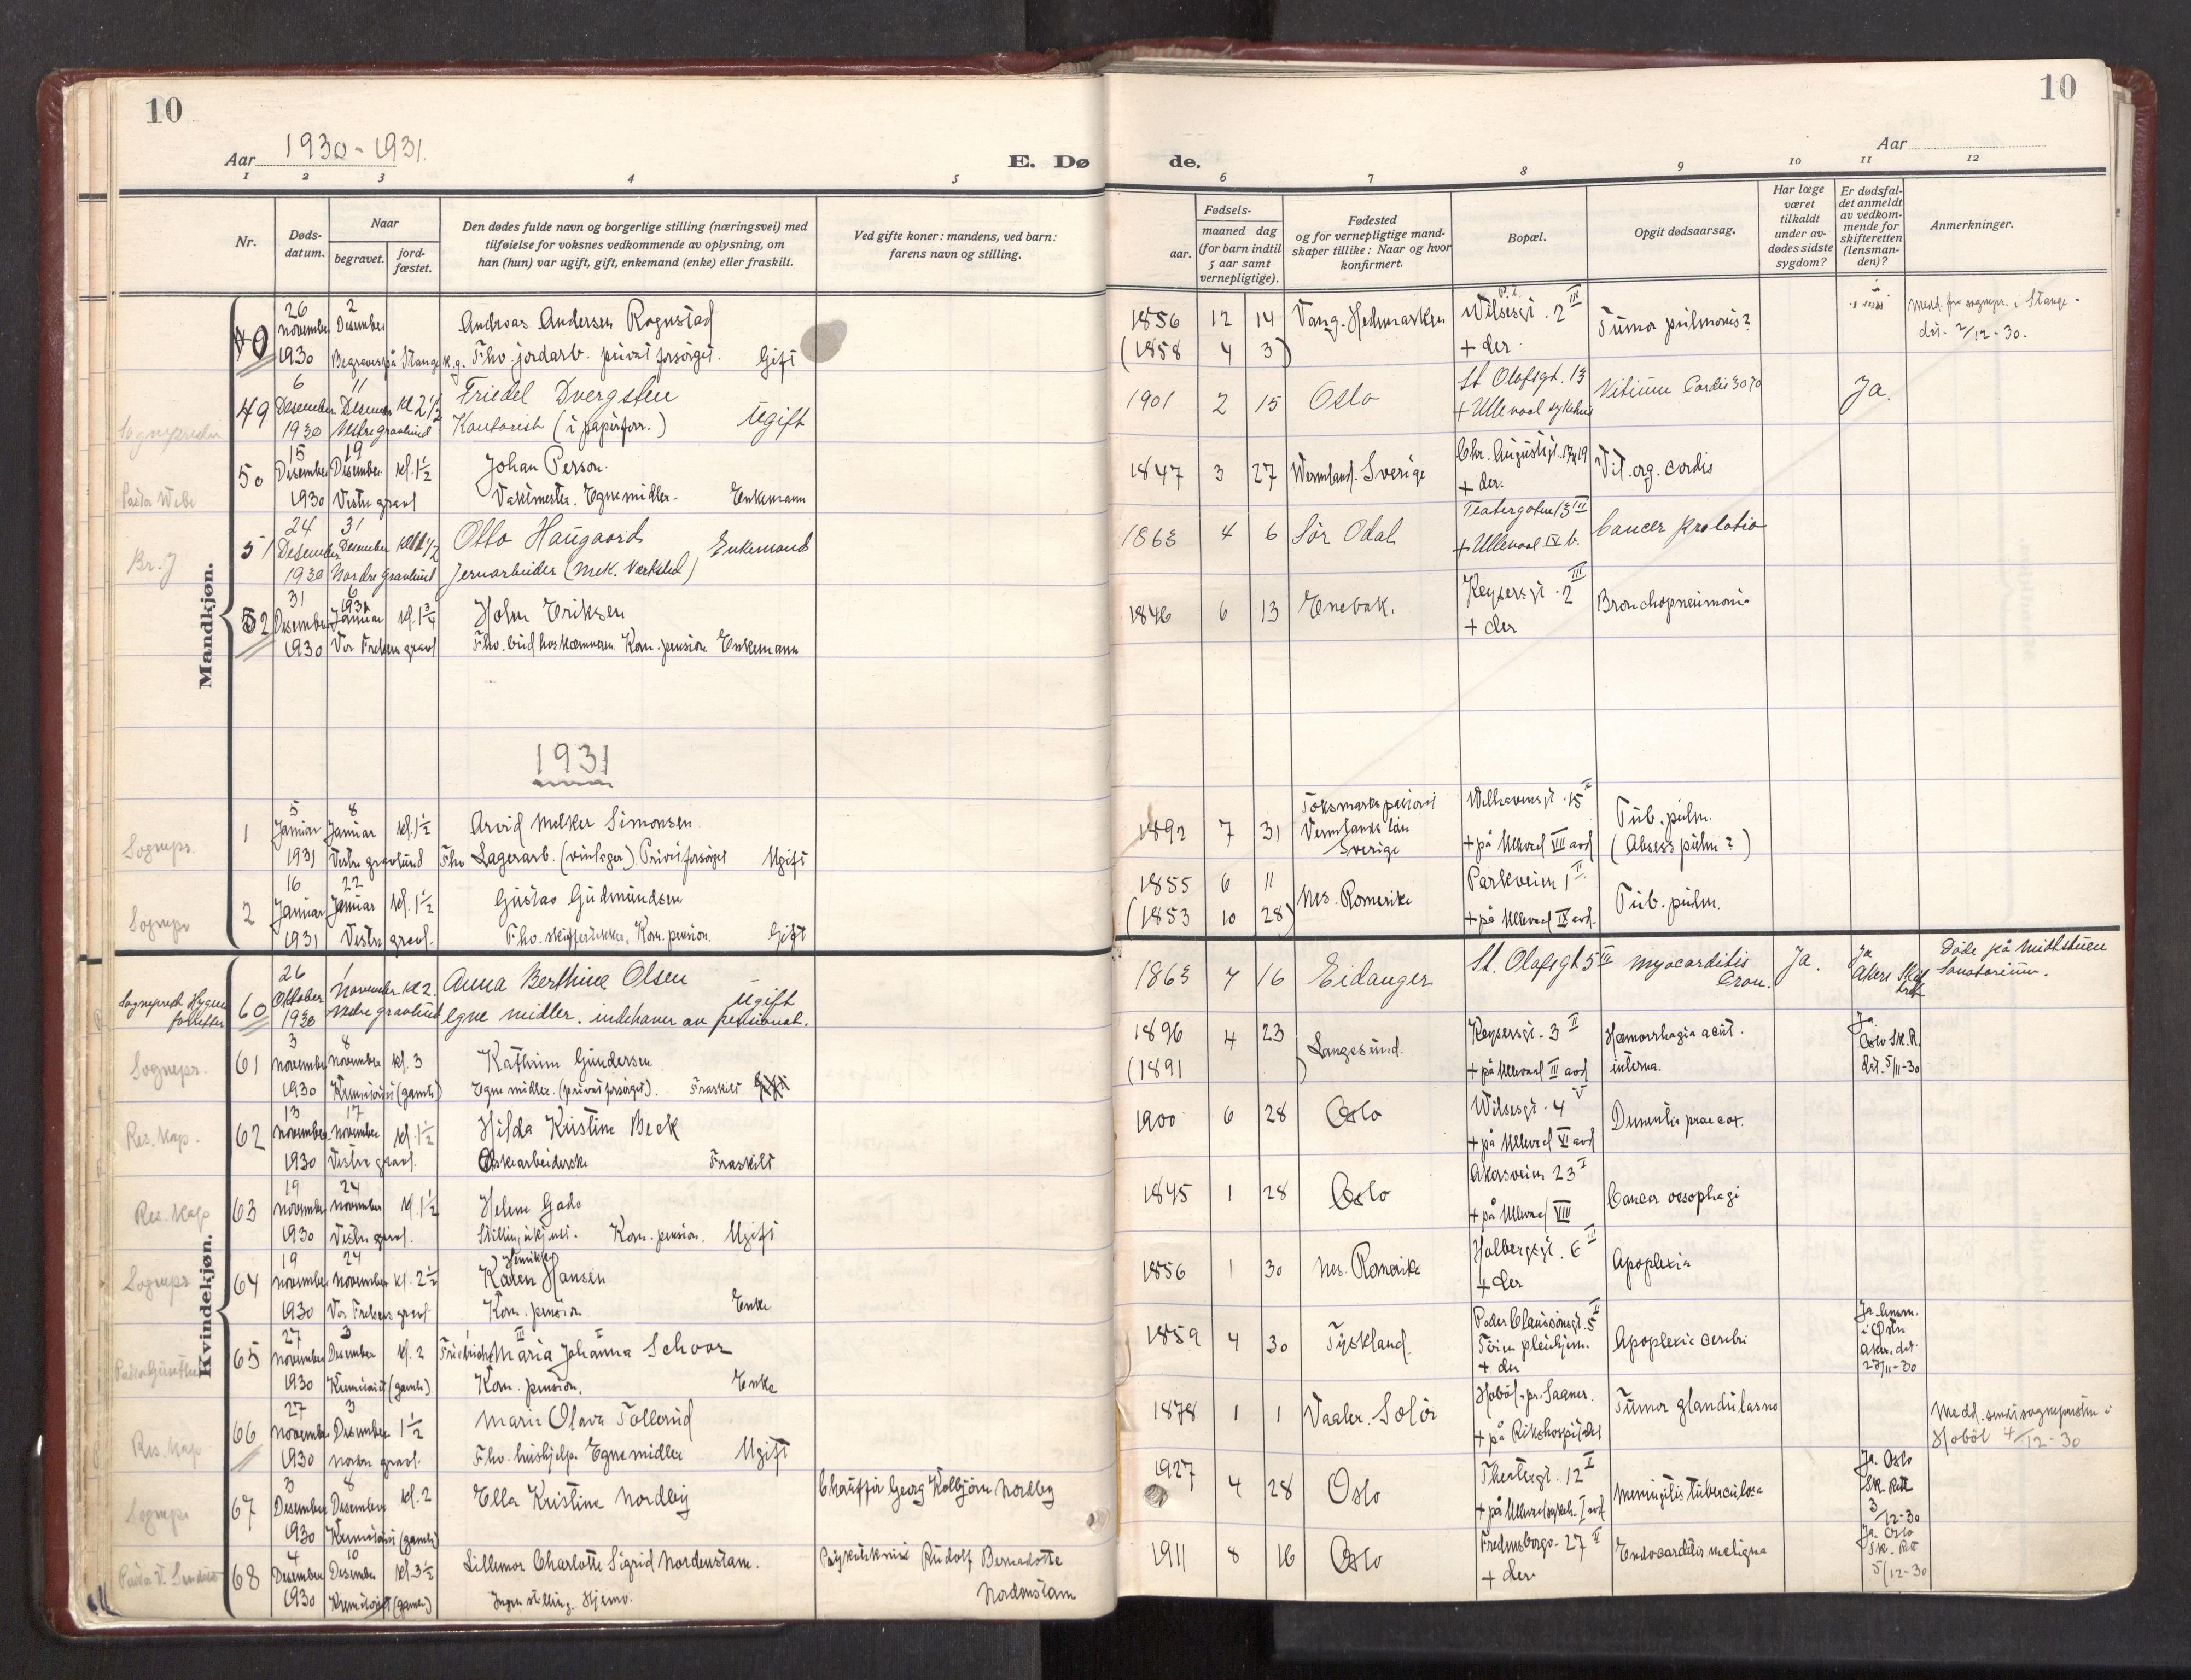 10
10
Aar 1930-1931.
E. Dø
de.
Aar
1 2 3 4 5
6 7 8 9 10 11 12
Nr.
Døds-
datum.
Naar
begravet.
jord-
fæstet.
Den dødes fulde navn og borgerlige stilling (næringsvei) med
tilføielse for voksnes vedkommende av oplysning, om
han (hun) var ugift, gift, enkemand (enke) eller fraskilt.
Ved gifte koner: mandens, ved barn:
farens navn og stilling.
Fødsels-
aar.
maaned dag
(for barn indtil
5 aar samt
vernepligtige).
Fødested
og for vernepligtige mand-
skaper tillike: Naar og hvor
konfirmert.
Bopæl.
Opgit dødsaarsag.
Har læge
været
tilkaldt
under av-
dødes sidste
sygdom?
Er dødsfal-
det anmeldt
av vedkom-
mende for
skifteretten
(lensman-
den)?
Anmerkninger.
Mandkjøn.
26 2
november Desember Andreas Andersen Rognstad 1856 12 14 Vang. Hedmarken Wilsesgt. 2 III Tumor pulmonis? Medd. fra sognepr. i Stange
1930 Begraves på Stange k.g. Fhv. jordarb. privat forsørget. Gift (1858 4 3) + der dat. 2/12-30.
6 11
49 Desember Desember kl 2 1/2 Friedel Dvergsten 1901 2 15 Oslo St Olafsgt. 13 Vitium Cordis Ja.
1930 Vestre gravlund Kontorist (i papirforr.) Ugift + Ullevaal sykehus
15 19
50 Desember Desember kl. 1 1/2 Johan Person. 1847 3 27 Wermland. Sverige Chr. Augustsgt. 19 Vit. org. cordis
Pastor Webe 1930 Vestre gravl Vaktmester. Egne midler. Enkemann + der.
24 31
Br. J 51 Desember Desember Otto Haugaard Enkemand 1863 4 6 Sör Odal Teatergaten 13 III Cancer prolatio
1930 Nordre Gravlund Jernarbeider (mek. Værksted) + Ullevaal IX b.
31 6
52 Desember 1931 Januar kl. 1 3/4 Holm Eriksen 1846 6 13 Enebak. Keysersgt. 2 III Bronchopneumoni
1930 Vor Frelsers gravl Fhv. bud hos kæmneren Kom. pension Enkemann + der
1931
5 8
Sognepr. 1 Januar Januar kl. 1 1/2 Arvid Melker Simonsen. 1892 7 31 Vermlands län Sverige Welhavensgt. 15 II Tub. pulm.
1931 Vestre gravlund Fhv Lagerarb. (vinlager). Privat forsørget Ugift + på Ullevaal VII avd (Absess pulm?)
16 22
Sognepr 2 Januar Januar kl. 1 1/2 Gustav Gudmundsen 1855 6 11 Nes. Romerike Parkveien 1 II Tub. pulm.
1931 Vestre gravl. Fhv. skiffertekker. Kom. pension. Gift (1853 10 28) + på Ullevaal IX avd.
Kvindekjøn.
26 1
Sogneprest Hygen 60 Oktober November kl 2. Anna Berthine Olsen Ugift 1863 7 16 Eidanger St. Olafsgt 5 III Myocarditis Cron. Ja. Ja Akers Døde på Midtstuen
1930 Vestre gravlund egne midler. indehaver av pensionat. Sanatorium.
3 8
Sognepr. 61 november november kl. 3 Kathrine Gundersen 1896 4 23 Langesund. Keysersgt. 3 II Hæmorrhagia acut. Ja Oslo Sk. R.
1930 Krematoriet (gamle) Egne midler. (privat forsørget). Fraskilt (1891 ) + på Ullevaal III avd interna. dat. 5/11-30
13 17
Res. Kap. 62 november november kl. 1 1/2 Hilda Kristine Beck 1900 6 28 Oslo Wilsesgt. 4 V Dementia praecox.
1930 Vestre gravl. Eskearbeiderske Fraskilt + på Ullevaal VI avd
19 24
Res. Kap 63 november november kl. 1 1/2 Helene Gade 1845 1 28 Oslo Akersveien 23 I Cancer oesophagi
1930 Vestre gravl. Stilling ukjent. Kom. pension. Ugift + på Ullevaal VIII
19 24 Henrikke
Sognepr 64 november november kl. 2 1/2 Karen Hansen 1856 1 30 Nes. Romerike Holbergsgt. 6 III Apoplexia
1930 Vor Frelsers gravl Kom. pension Enke + der
27 3
65 november Desember kl. 2 Friedrich Maria Johanna Schoor 1859 4 30 Tyskland. Peder Claussønsgt. 5 II Apoplexia cerebri Ja. lensm. i Østre Aker. dat. 27/11-30
1930 Krematoriet (gamle) Kom. pension. Enke Töien pleiehjem. + der
27 3
Res. Kap 66 november Desember 1 1/2 Marie Olava Tollerud 1878 1 1 Vaaler. Solør Hobøl. pr. Saaner. Tumor glandulasno Medd. sendt sognepresten i
1930 nordre gravl. Fhv. hushjelp. Egne midler Ugift + på Rikshospitalet Hobøl 4/12-30
3 8
Sognepr 67 Desember Desember kl. 2 Ella Kristine Nordby Chauffør Georg Kolbjörn Nordby 1927 4 28 Oslo Theatergt. 12 I Meningitis tuberculosa Ja. Oslo Sk. Rett 3/12-30
1930 Krematoriet (gamle) + på Ullevaal sykeh. I avd
4 10
68 Desember Desember kl. 3 1/2 Lillemor Charlotte Sigrid Nordenstam. Rudolf Bernadotte Nordenstam 1911 8 16 Oslo Fredensborgv. 27 II Endocarditis maligna Ja. Oslo Sk. Rett 5/12-30
1930 Krematoriet (gamle) Ingen stilling. Hjemv. + der